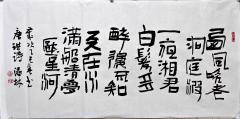 西風吹老
洞庭波
一夜湘君
白髮多
醉後不知
天在水
滿船清夢
壓星河
唐珙詩